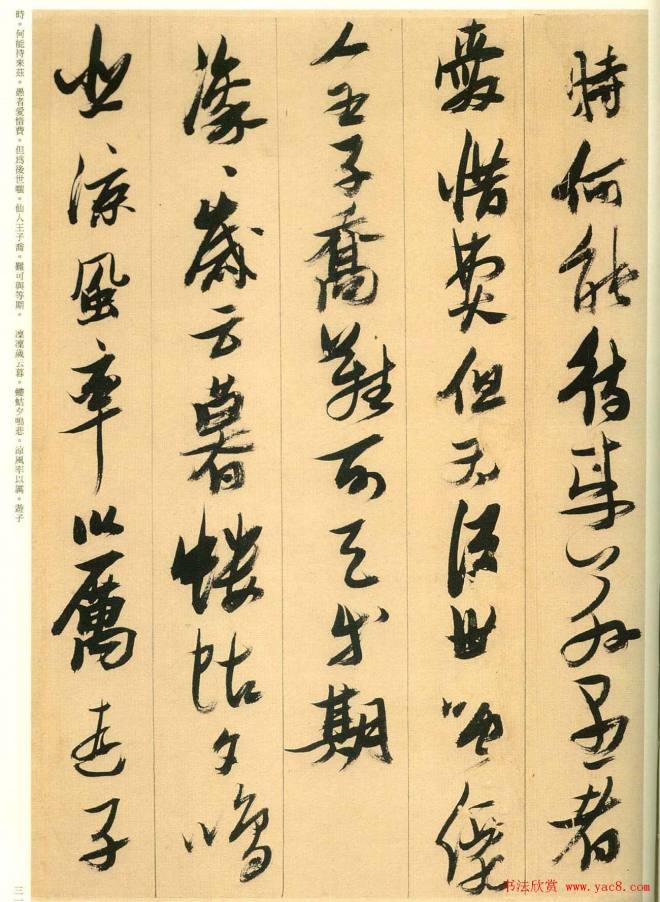 時何能待來茲愚者
愛惜費但為後世嗤仙
人王子喬難可與等期
凜〻歲云暮螻蛄夕鳴
悲涼風率以厲遊子
時。何能待来茲。愚者愛惜費。但爲後世嗤。仙人王子喬。難可與等期。　凜凜歲云暮。螻蛄夕鳴悲。涼風率以厲。遊子
书法欣赏 www.yac8.com